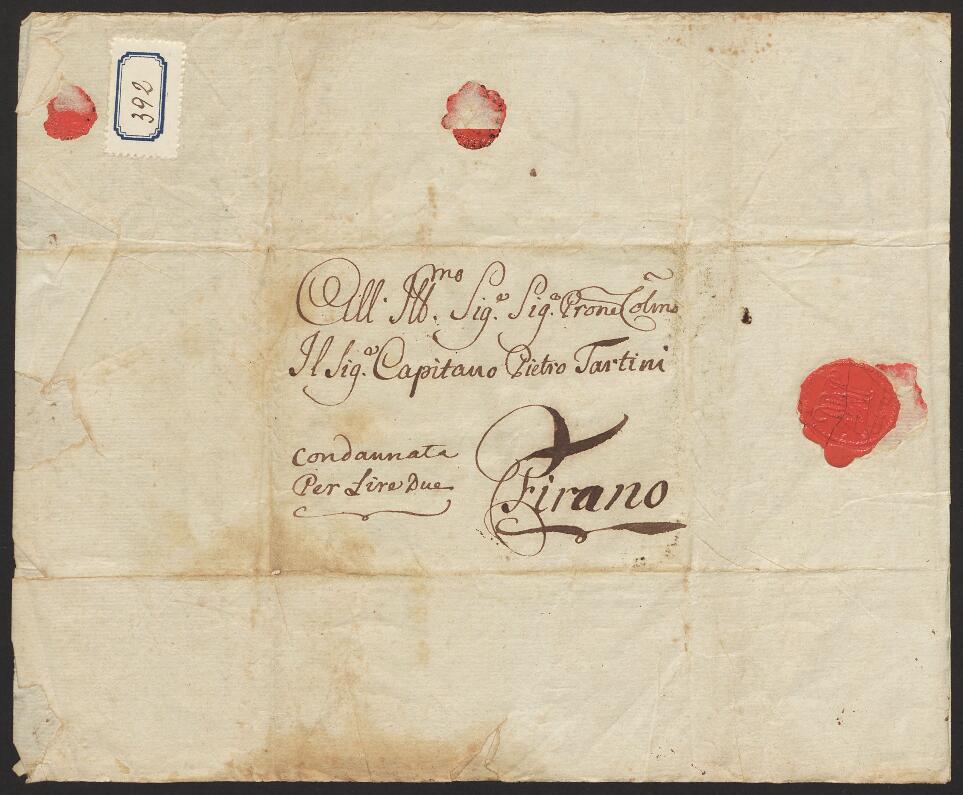 392
All' Ill.mo Sig.e Sig.e Prone Colmo
Il Sig.e Capitano Pietro Tartini
condannata
Per Lire Due
Pirano